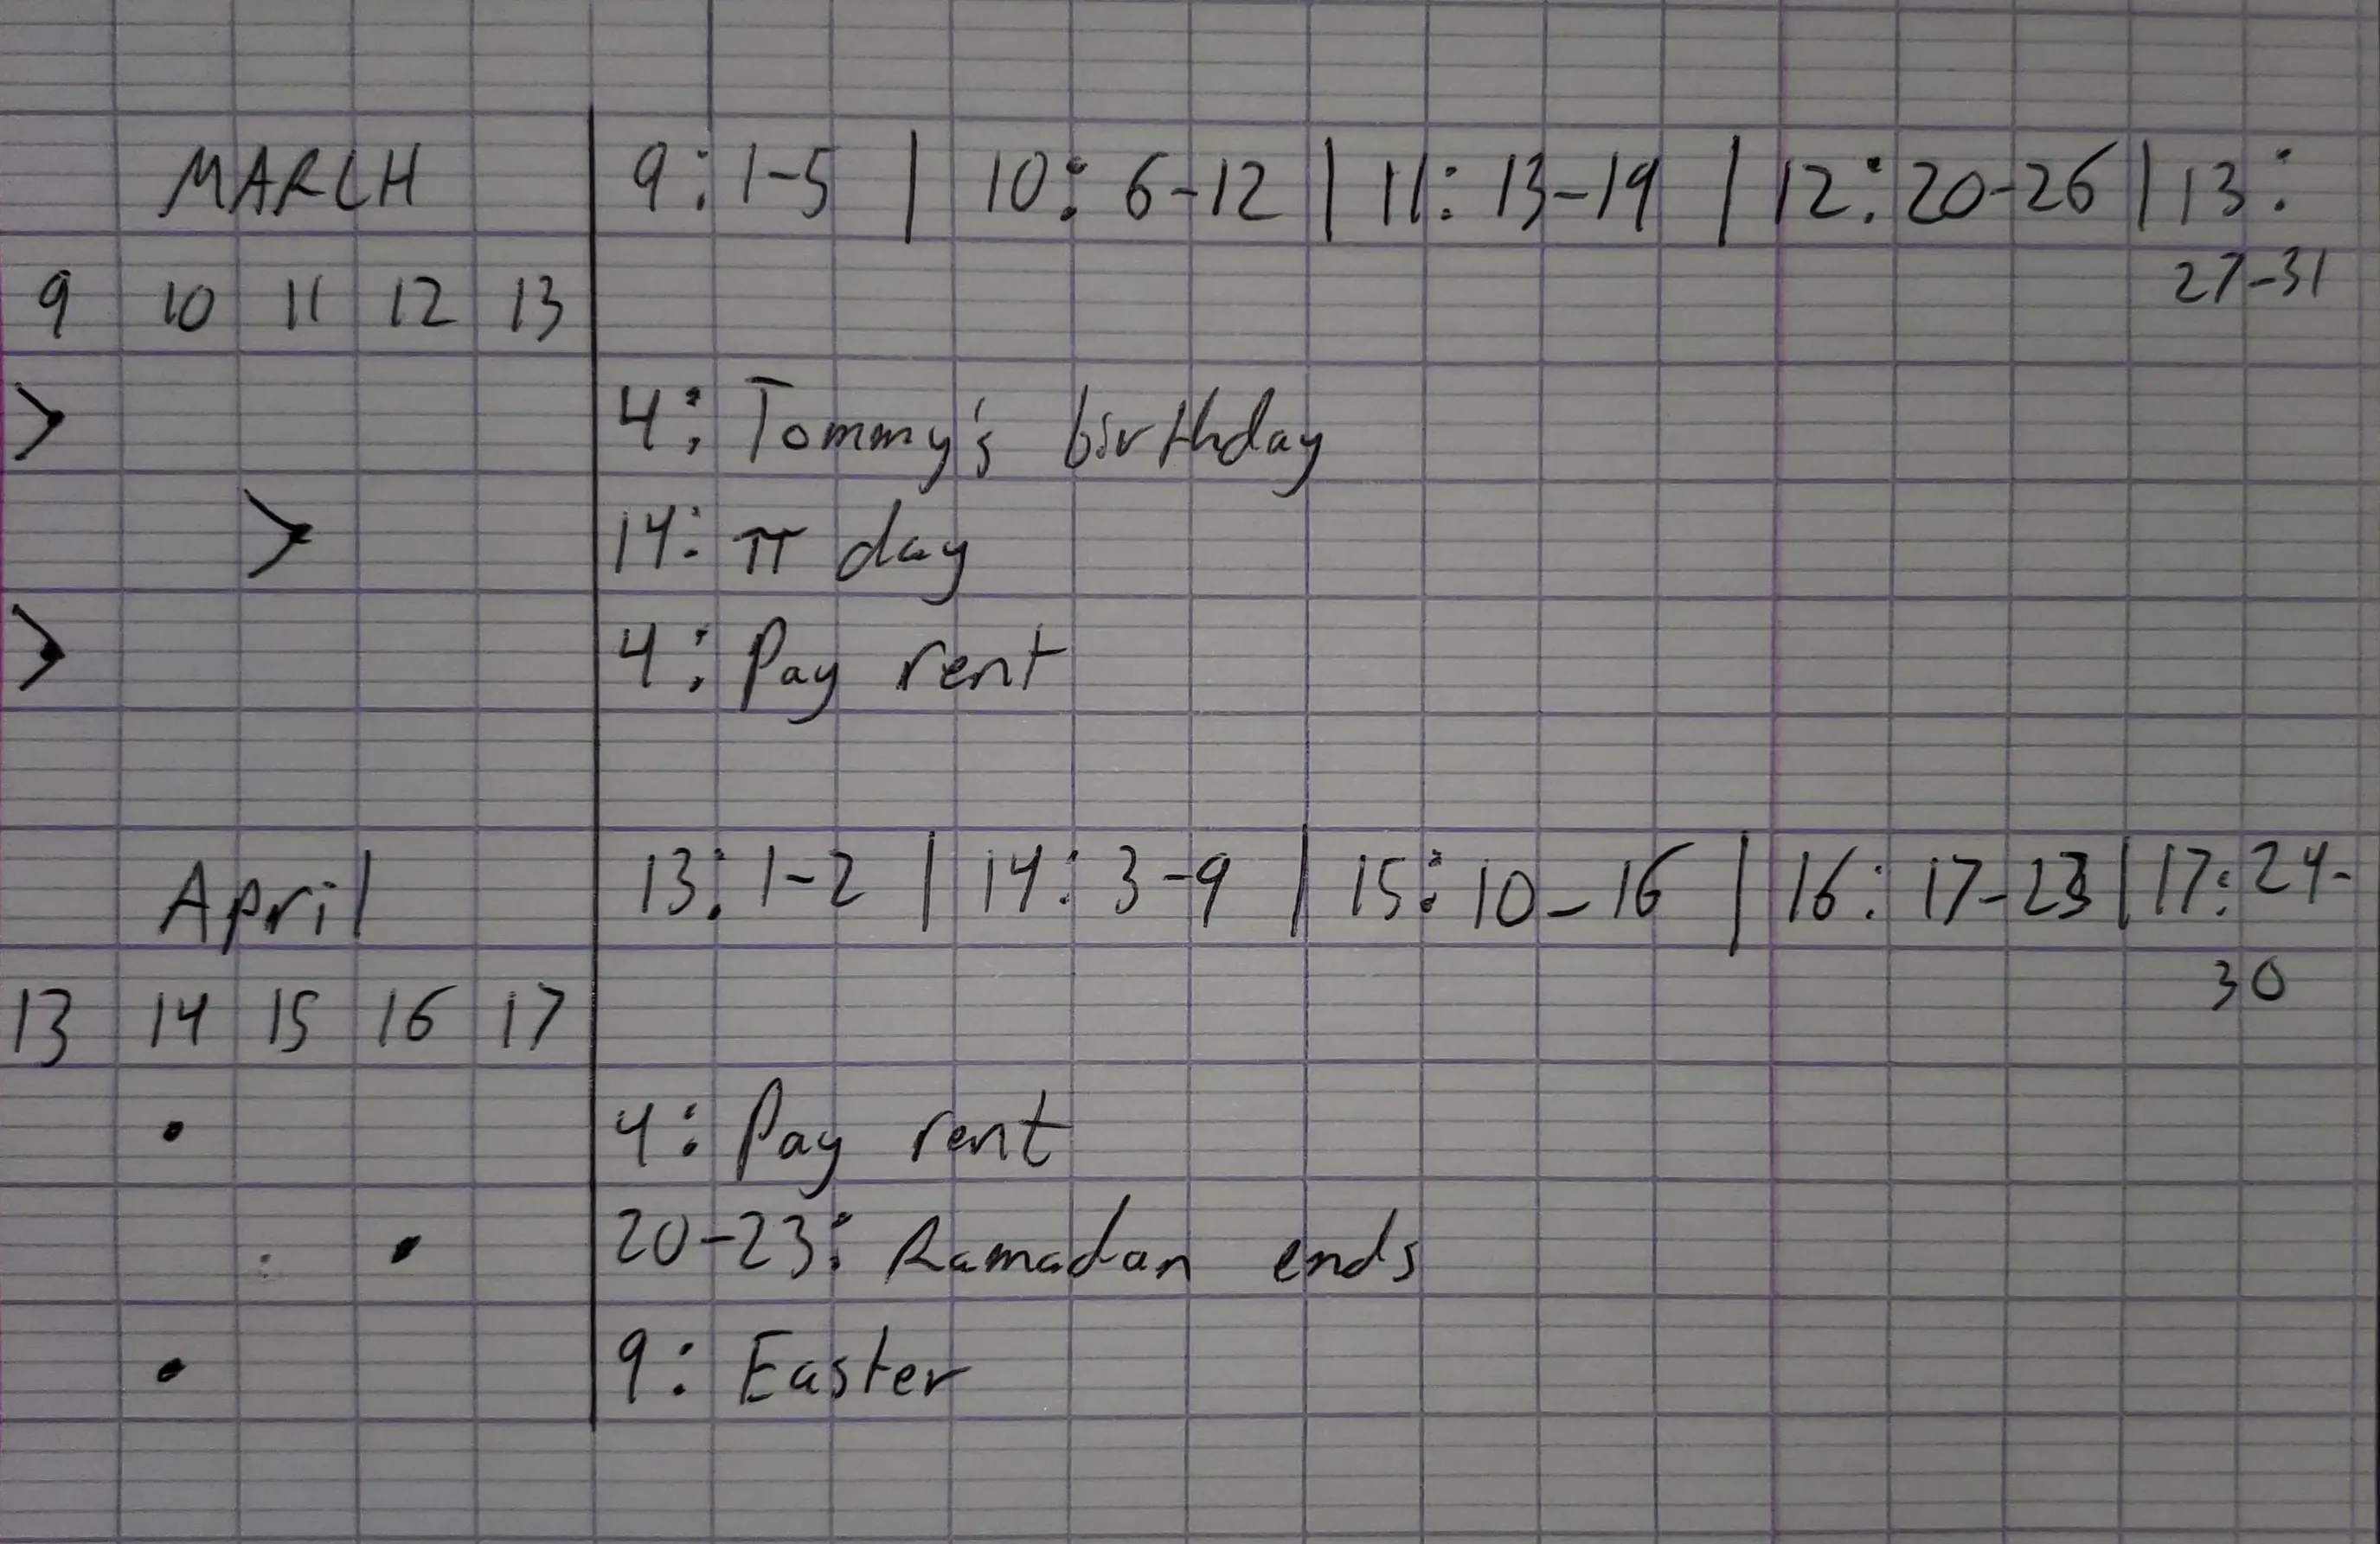 MARCH 9: 1-5 | 10: 6-12 | 11: 13-19 | 12: 20-26 | 13:
27-31
9 10 11 12 13
> 4: Tommy's birthday
> 14: π day
> 4: Pay rent
April 13: 1-2 | 14: 3-9 | 15: 10-16 | 16: 17-23 | 17: 24-
30
13 14 15 16 17
• 4: Pay rent
• 20-23: Ramadan ends
• 9: Easter